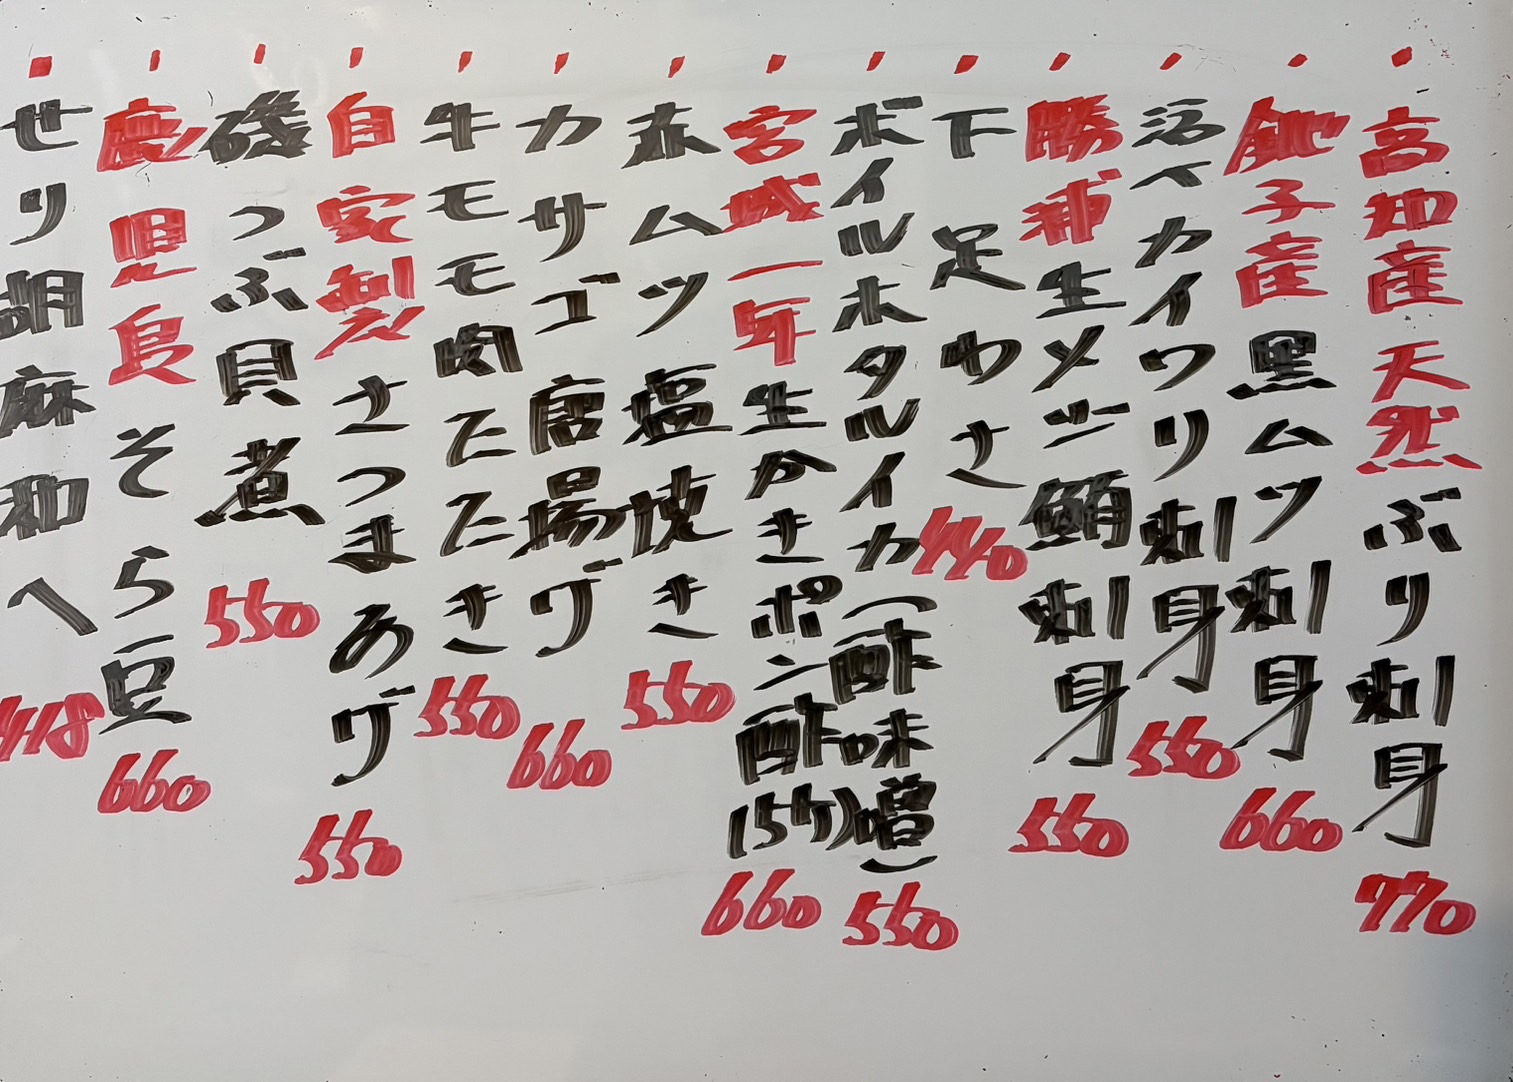 高知産天然ぶり刺身 770
銚子産黒ムツ刺身 660
活〆カイワリ刺身 550
勝浦生メジ鮪刺身 550
下足わさ 440
ボイルホタルイカ(酢味噌) 550
宮城一年生かきポン酢(5ケ) 660
赤ムツ塩焼き 550
カサゴ唐揚げ 660
牛モモ肉たたき 550
自家製さつまあげ 550
磯つぶ貝煮 550
鹿児島そら豆 660
せり胡麻和へ 418